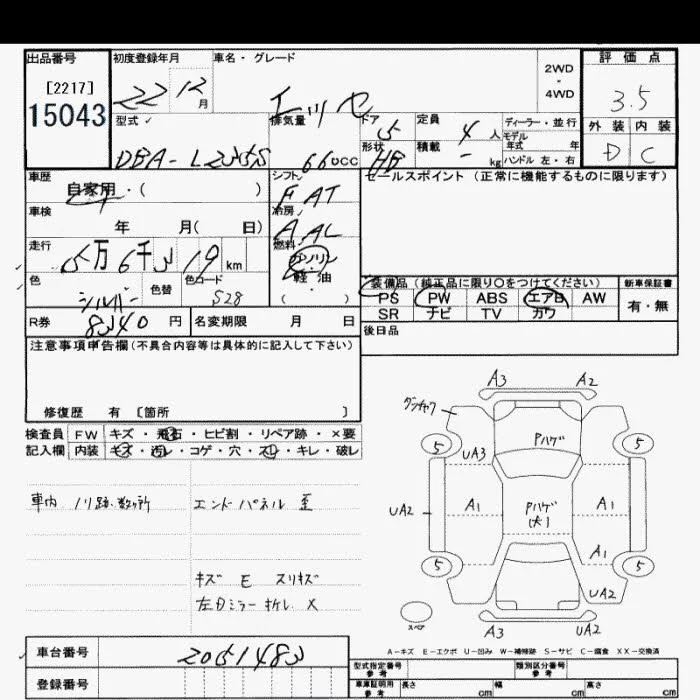 出品番号
[2217]
15043
初度登録年月
22 12 月
車名・グレード
エッセ
2WD
・
4WD
評価点
3.5
外装 内装
D C
型式
DBA-L235S
排気量
660cc
ドア
5
形状
HB
定員
4 人
積載
- kg
ディーラー・並行
モデル
年式 年
ハンドル 左・右
車歴
自家用・( )
シフト
F AT
セールスポイント (正常に機能するものに限ります)
車検
年 月( 日)
冷房
A AC
走行
5万6千319 km
燃料
ガソリン
軽・油
( )
色
シルバー
色替
色コード
S28
装備品 (純正品に限り〇をつけてください)
新車保証書
PS PW ABS エアB AW
SR ナビ TV カワ
有・無
R券
8340 円
名変期限 月 日
後日品
注意事項申告欄 (不具合内容等は具体的に記入して下さい)
修復歴 有 [箇所 ]
検査員 FW キズ・飛石・ヒビ割・リペア跡・×要
記入欄 内装 キズ・汚レ・コゲ・穴・スレ・キレ・破レ
車内 ノリ跡.数ヶ所
エンドパネル 歪
キズ E スリキズ
左Dミラー オレ X
A3 A2
5 5
Pハゲ
UA3
UA2 A1 Pハゲ A1
(大)
A1
5 5
UA2
スペア
A3 UA2
A-キズ E-エクボ U-凹み W-補修跡 S-サビ C-腐食 XX-交換済
車台番号
2051483
登録番号
型式指定番号
参考
類別区分番号
参考
車庫証明用
参考
長さ cm 幅 cm 高さ cm